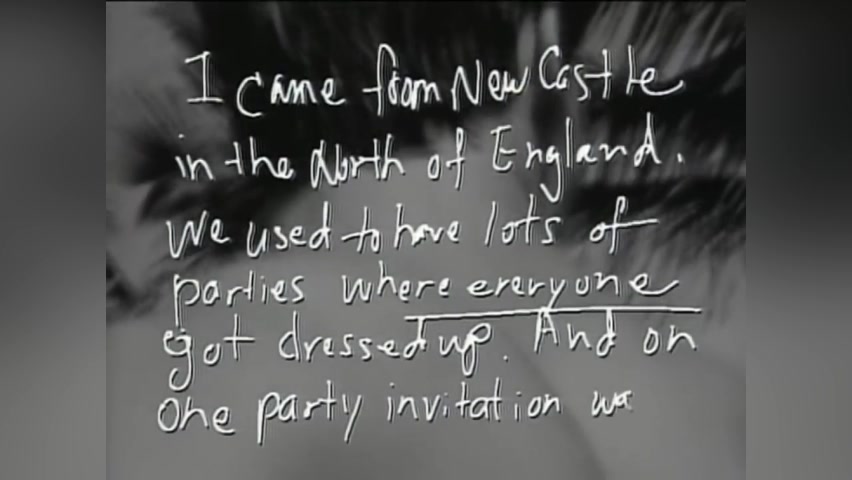 I came from New Castle
in the North of England.
We used to have lots of
parties where everyone
got dressed up. And on
one party invitation wa